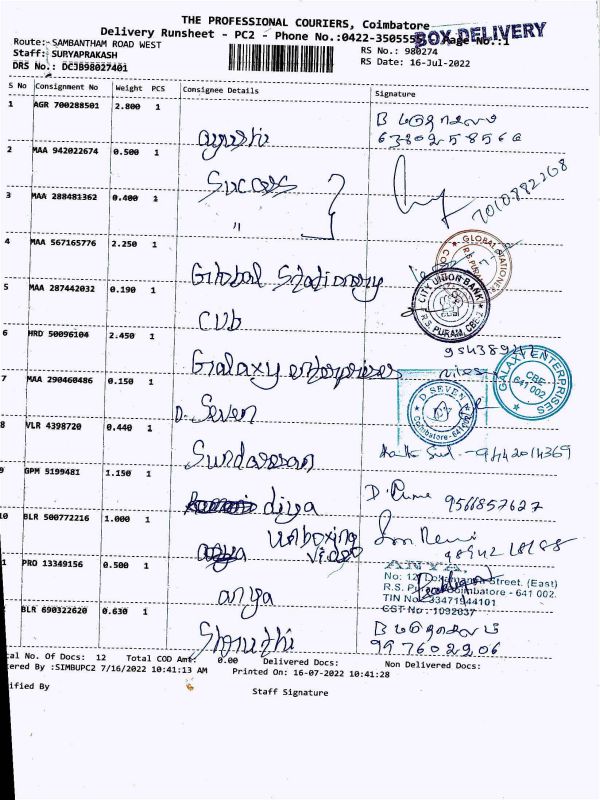 THE PROFESSIONAL COURIERS, Coimbatore
Delivery Runsheet - PC2 - Phone No.:0422-3505555 Page No.:1
BOX DELIVERY
Route:- SAMBANTHAM ROAD WEST
RS No.: 980274
Staff: SURYAPRAKASH
RS Date: 16-Jul-2022
DRS No.: DCJB98027401
S No Consignment No Weight PCS Consignee Details Signature
1 AGR 700288501 2.800 1
2 MAA 942022674 0.500 1 Success
7010882268
3 MAA 288481362 0.400 1 "
4 MAA 567165776 2.250 1 Global Stationary
GLOBAL STATIONER
R.S. PURAM
5 MAA 287442032 0.190 1 CUB
CITY UNION BANK
R.S. PURAM, CBE-2
6 HRD 50096104 2.450 1 Galaxy enterprises
GALAXY ENTERPRISES
CBE
641 002
7 MAA 290460486 0.150 1 D. Seven
D. SEVEN
Coimbatore-641
8 VLR 4398720 0.440 1 Sundaresan
9442014369
9 GPM 5199481 1.150 1 diya
9566857627
10 BLR 500772216 1.000 1 Unboxing
Video
1 PRO 13349156 0.500 1 anya
No: 12, Street, (East)
R.S. Puram, Coimbatore - 641 002.
TIN No: 33471944101
CST No: 1092037
BLR 690322620 0.630 1 Shruthi
9976022206
tal No. Of Docs: 12 Total COD Amt: 0.00 Delivered Docs: Non Delivered Docs:
tered By :SIMBUPC2 7/16/2022 10:41:13 AM Printed On: 16-07-2022 10:41:28
ified By Staff Signature